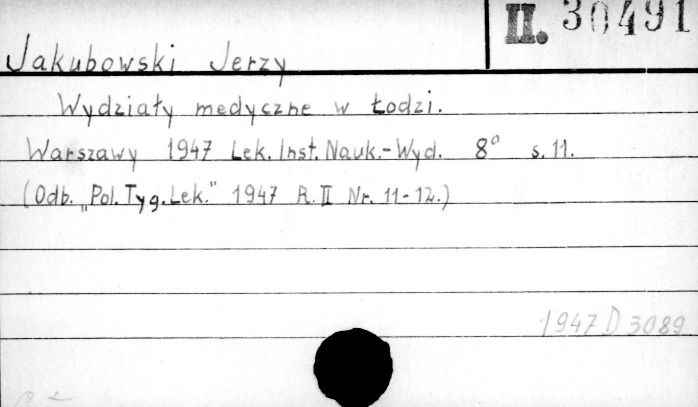 II. 30491
Jakubowski Jerzy
Wydziały medyczne w Łodzi.
Warszawy 1947 Lek. Inst. Nauk.-Wyd. 8° s. 11.
(Odb. „Pol. Tyg. Lek." 1947 R. II Nr. 11-12.)
1947 D 3089